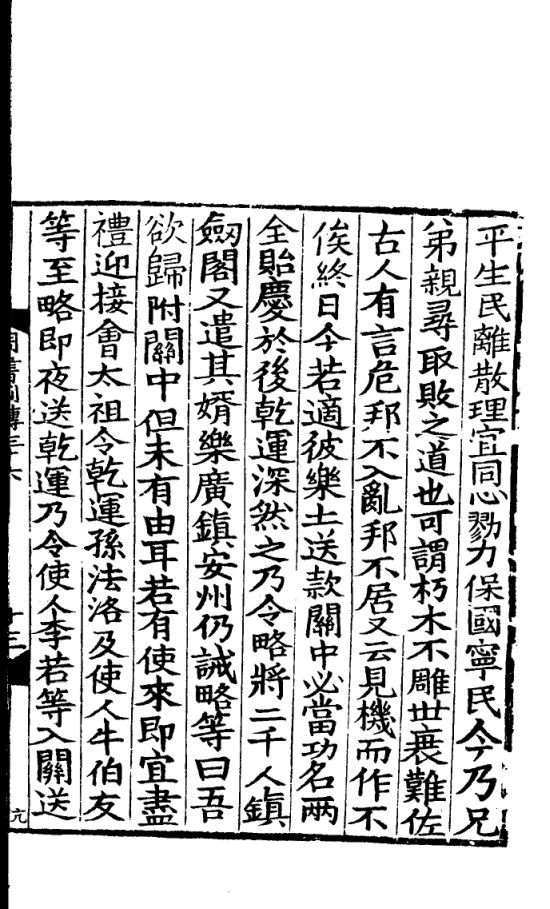 平生民離散理宜同心勠力保國寧民今乃兄
弟親尋取敗之道也可謂朽木不雕世衰難佐
古人有言危邦不入亂邦不居又云見機而作不
俟終日今若適彼樂土送款關中必當功名兩
全貽慶於後乾運深然之乃令略將二千人鎮
劔閣又遣其婿樂廣鎮安州仍誡略等曰吾
欲歸附關中但未有由耳若有使來即宜盡
禮迎接會太祖令乾運孫法洛及使人牛伯友
等至略即夜送乾運乃令使人李若等入關送
十三